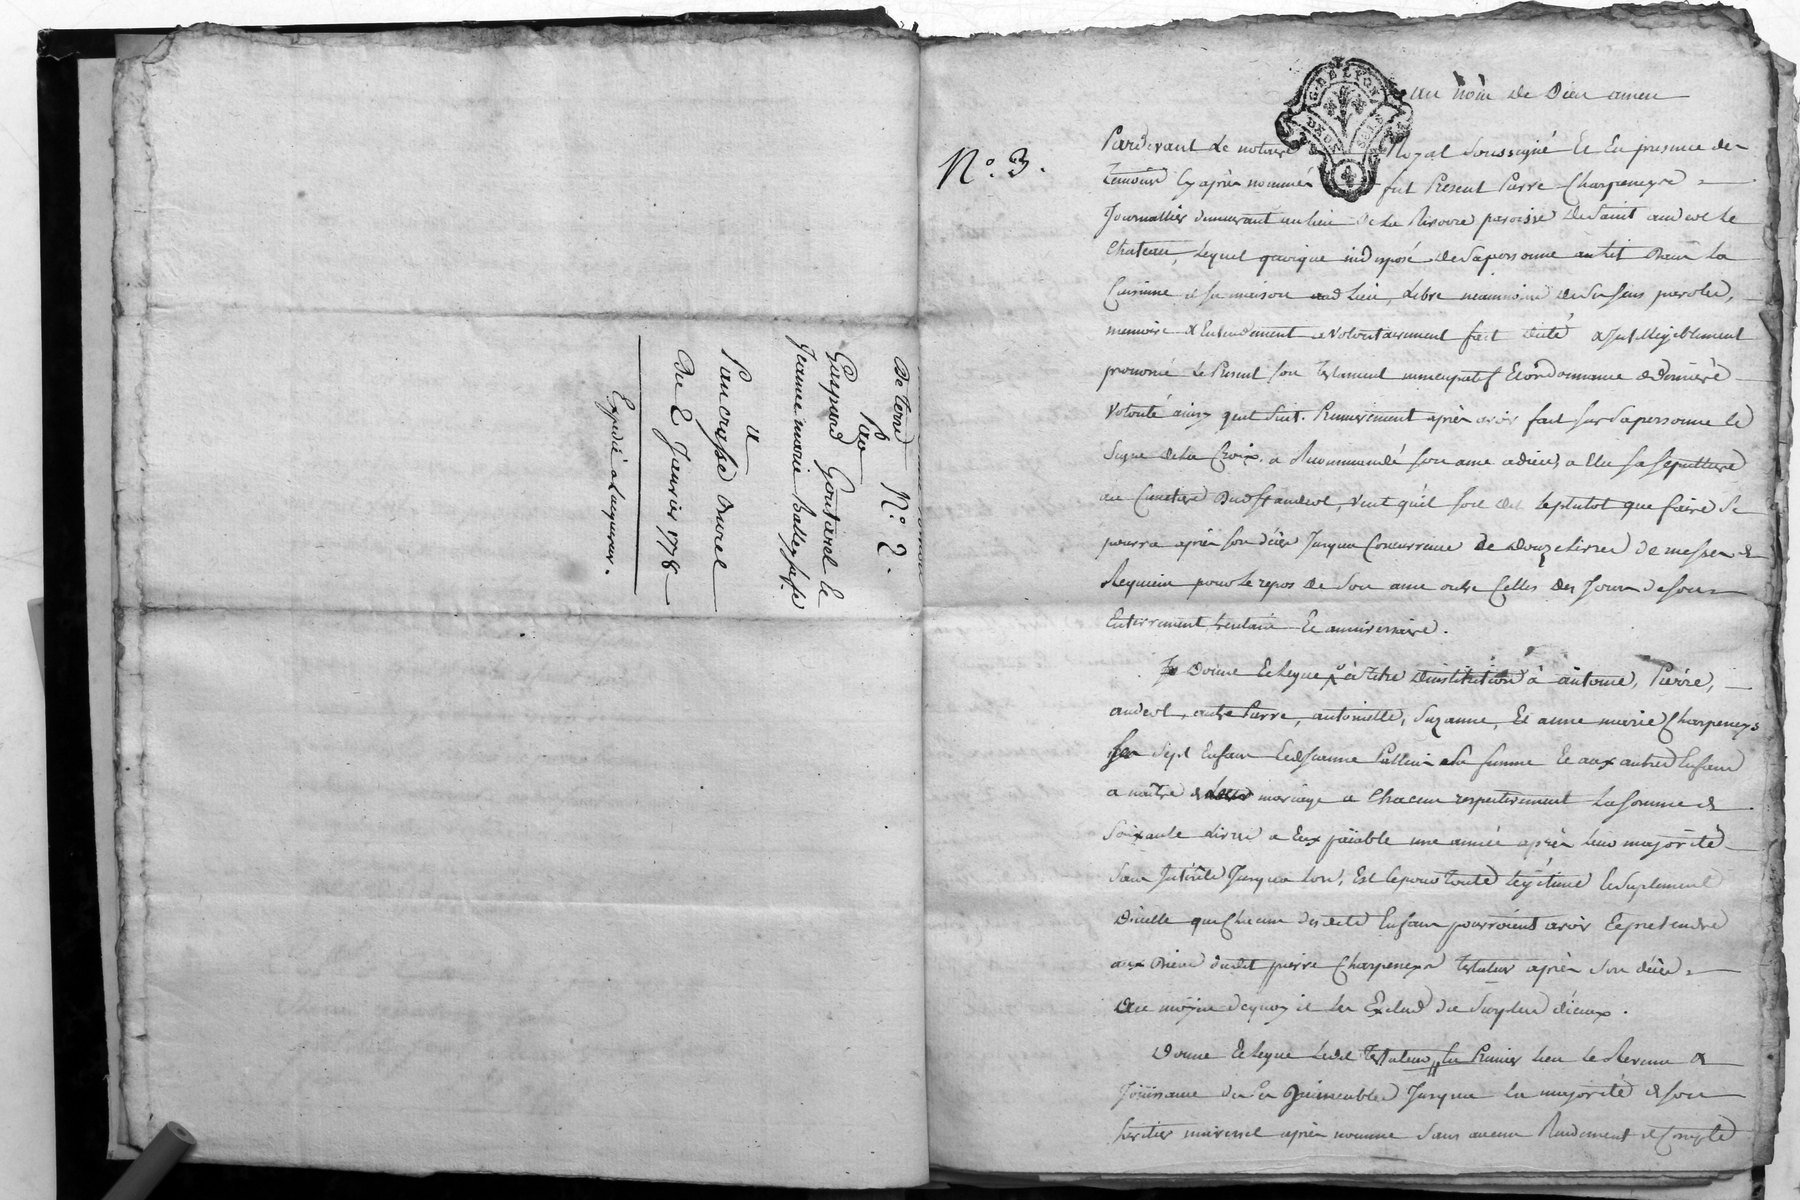 De terre N°. 2.
Par
Gaspard Goutarel le
Jeanne marie Balleysasse
a
Pancrasse Burel
Du 2 Janvier 1778
Expedié a lacquereur.
N°. 3.
G. DE LYON
DEUX SOLS
au nom de Dieu amen
Pardevant Le notaire Royal Soussigné Et En presence des
Temoins Cy après nommés fut Present Pierre Charpeneyre
Journallier demeurant au lieu de La Rivoire paroisse de Saint andeol le
Chateau, lequel quoique indisposé de Sa personne au lit dans La
Cuisinne de sa maison aud Lieu, Libre neammoins de Ses sens parolle,
memoire & Entendement a Volontairement fait dicté & Intelligiblement
prononcé Le Present son testament nuncupatif Et ordonnance de derniere
Volonté ainsy quil Suit. Premierement après avoir fait sur Sa personne le
Signe de La Croix, a Recommandé son ame a dieu, a Elu sa sépulture
au Cimetiere dud St andeol, veut qu'il soit dit le plutot que faire Se
pourra après son décès Jusqua Concurrance de douze Livres de messes de
Requiem pour le repos de Son ame outre Celles des Jours de son
Enterrement, trentain Et anniversaire.
Donne Et legue à titre d'institution à antoine, Pierre,
andeol, autre Pierre, antoinette, Suzanne, Et anne marie Charpeneyre
ses Sept Enfans Et de Jeanne Pallein Sa femme Et aux autres Enfans
a naitre de leur mariage a Chacun respectivement La somme de
Soixante Livres a Eux païable une année après leur majorité
Sans Intérêts Jusqua lors, Est ce pour toute légitime Et Suplement
D'icelle que Chacun desdits Enfans pourroient avoir Et pretendre
aux Biens dudit pierre Charpeneyre testateur après Son décès
Au moyen de quoy il les Exclud du Surplus d'iceux.
Donne Et legue Ledit testateur En Premier lieu le Revenu &
Joüissance de Ses Immeubles Jusqua la majorité de son
heritier universel après nommé Sans aucun Rendement de Compte